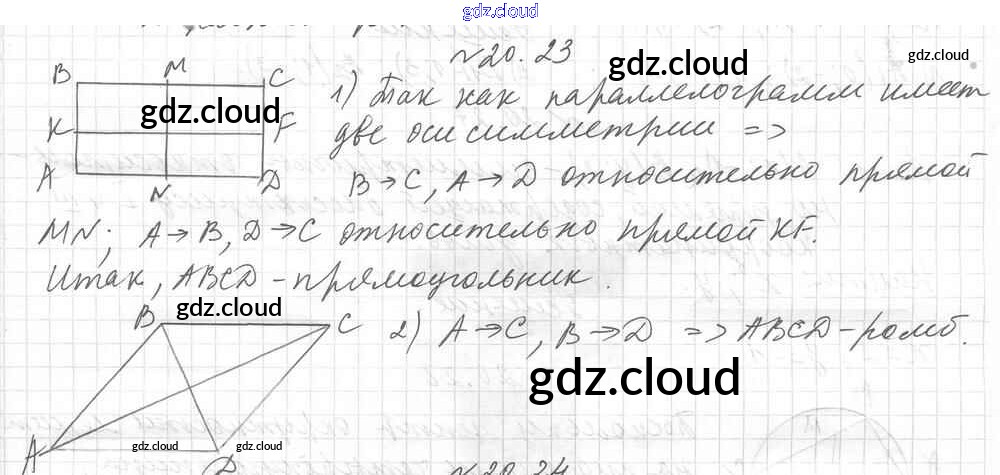 gdz.cloud
№20.23
gdz.cloud
gdz.cloud
B M C
1) Так как параллелограмм имеет
gdz.cloud
K F
две оси симметрии =>
A N D
B→C, A→D относительно прямой
MN; A→B, D→C относительно прямой KF.
Итак, ABCD - прямоугольник.
gdz.cloud
B C
2) A→C, B→D => ABCD - ромб.
gdz.cloud
A D
gdz.cloud
gdz.cloud
№20.24